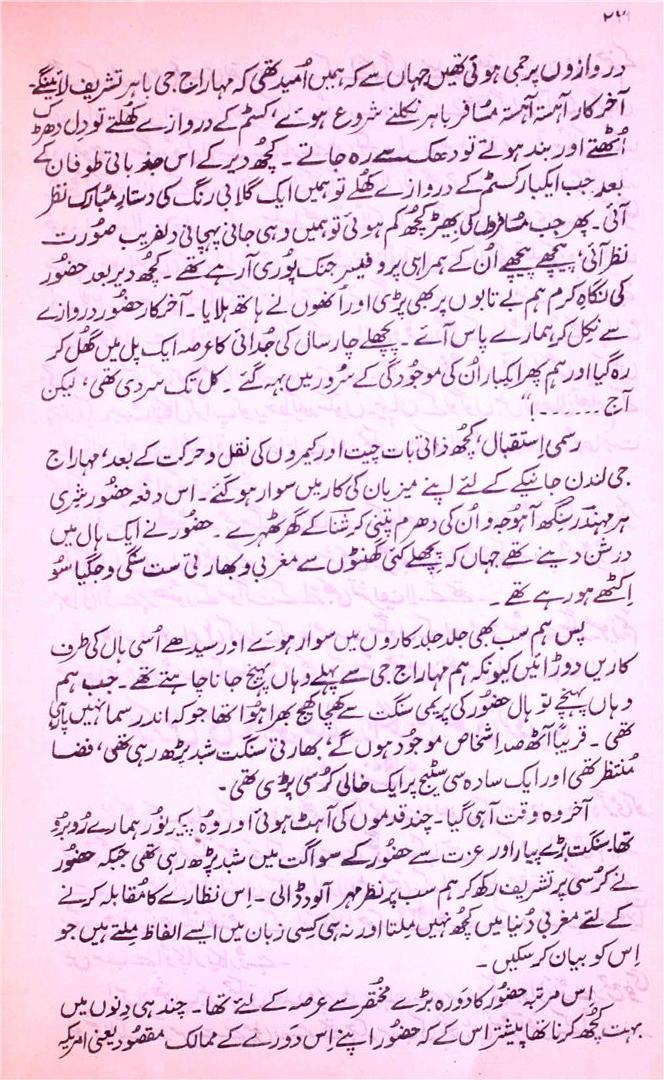 ۲۶
دروازوں پر جمی ہوتی تھیں جہاں سے کہ ہمیں اُمید تھی کہ مہاراج جی باہر تشریف لائینگے۔
آخرکار آہستہ آہستہ مُسافر باہر نکلنے شروع ہوئے، کسٹم کے دروازے کُھلتے تو دِل دھڑک
اُٹھتے اور بند ہوتے تو دھک سے رہ جاتے۔ کچھ دیر کے اس جذباتی طوفان کے
بعد جب ایکبار کسٹم کے دروازے کُھلے تو ہمیں ایک گلابی رنگ کی دستارِ مُبارک نظر
آئی۔ پھر جب مُسافروں کی بِھیڑ کچھ کم ہوئی تو ہمیں وہی جانی پہچانی دلفریب صُورت
نظر آئی، پیچھے پیچھے اُن کے ہمراہی پروفیسر جنک پُوری آ رہے تھے۔ کچھ دیر بعد حضُور
کی نگاہِ کرم ہم بے تابوں پر بھی پڑی اور اُنھوں نے ہاتھ ہلایا۔ آخرکار حضُور دروازے
سے نِکل کر ہمارے پاس آئے۔ پچھلے چار سال کی جُدائی کا عرصہ ایک پل میں گھُل کر
رہ گیا اور ہم پھر ایکبار اُن کی موجُودگی کے سُرور میں بہہ گئے۔ کل تک سردی تھی، لیکن
آج ۔۔۔۔۔۔!“
رسمی اِستقبال، کچھ ذاتی بات چیت اور کیمروں کی نقل و حرکت کے بعد، مہاراج
جی لندن جانیکے کے لئے اپنے میزبان کی کار میں سوار ہو گئے۔ اس دفعہ حضُور شری
ہر مہندر سنگھ آہُوجہ و اُن کی دھرم پتنی کرشنا کے گھر ٹھہرے۔ حضُور نے ایک ہال میں
درشن دینے تھے جہاں کہ پچھلے کئی گھنٹوں سے مغربی و بھارتی ست سنگی و جگیاسُو
اِکٹھے ہو رہے تھے۔
پس ہم سب بھی جلد جلد کاروں میں سوار ہوئے اور سیدھے اُسی ہال کی طرف
کاریں دوڑائیں کیونکہ ہم مہاراج جی سے پہلے وہاں پہنچ جانا چاہتے تھے۔ جب ہم
وہاں پہنچے تو ہال حضُور کی پریمی سنگت سے کھچا کھچ بھرا ہُوا تھا جو کہ اندر سما نہیں پا رہی
تھی۔ قریباً آٹھ صد اشخاص موجُود ہوں گے، بھارتی سنگت شبد پڑھ رہی تھی، فضا
مُنتظر تھی اور ایک سادہ سی سٹیج پر ایک خالی کُرسی پڑی تھی۔
آخر وہ وقت آ ہی گیا۔ چند قدموں کی آہٹ ہوئی اور وُہ پیکرِ نُور ہمارے رُوبرُو
تھا۔ سنگت بڑے پیار اور عزت سے حضُور کے سواگت میں شبد پڑھ رہی تھی جبکہ حضُور
نے کُرسی پر تشریف رکھ کر ہم سب پر نظر مہر آلود ڈالی۔ اِس نظارے کا مُقابلہ کرنے
کے لئے مغربی دُنیا میں کچھ نہیں مِلتا اور نہ ہی کسی زبان میں ایسے الفاظ مِلتے ہیں جو
اِس کو بیان کر سکیں۔
اِس مرتبہ حضُور کا دَورہ بڑے مختصر سے عرصہ کے لئے تھا۔ چند ہی دِنوں میں
بہت کچھ کرنا تھا پیشتر اس کے کہ حضُور اپنے اِس دَورے کے ممالک مقصُود یعنی امریکہ